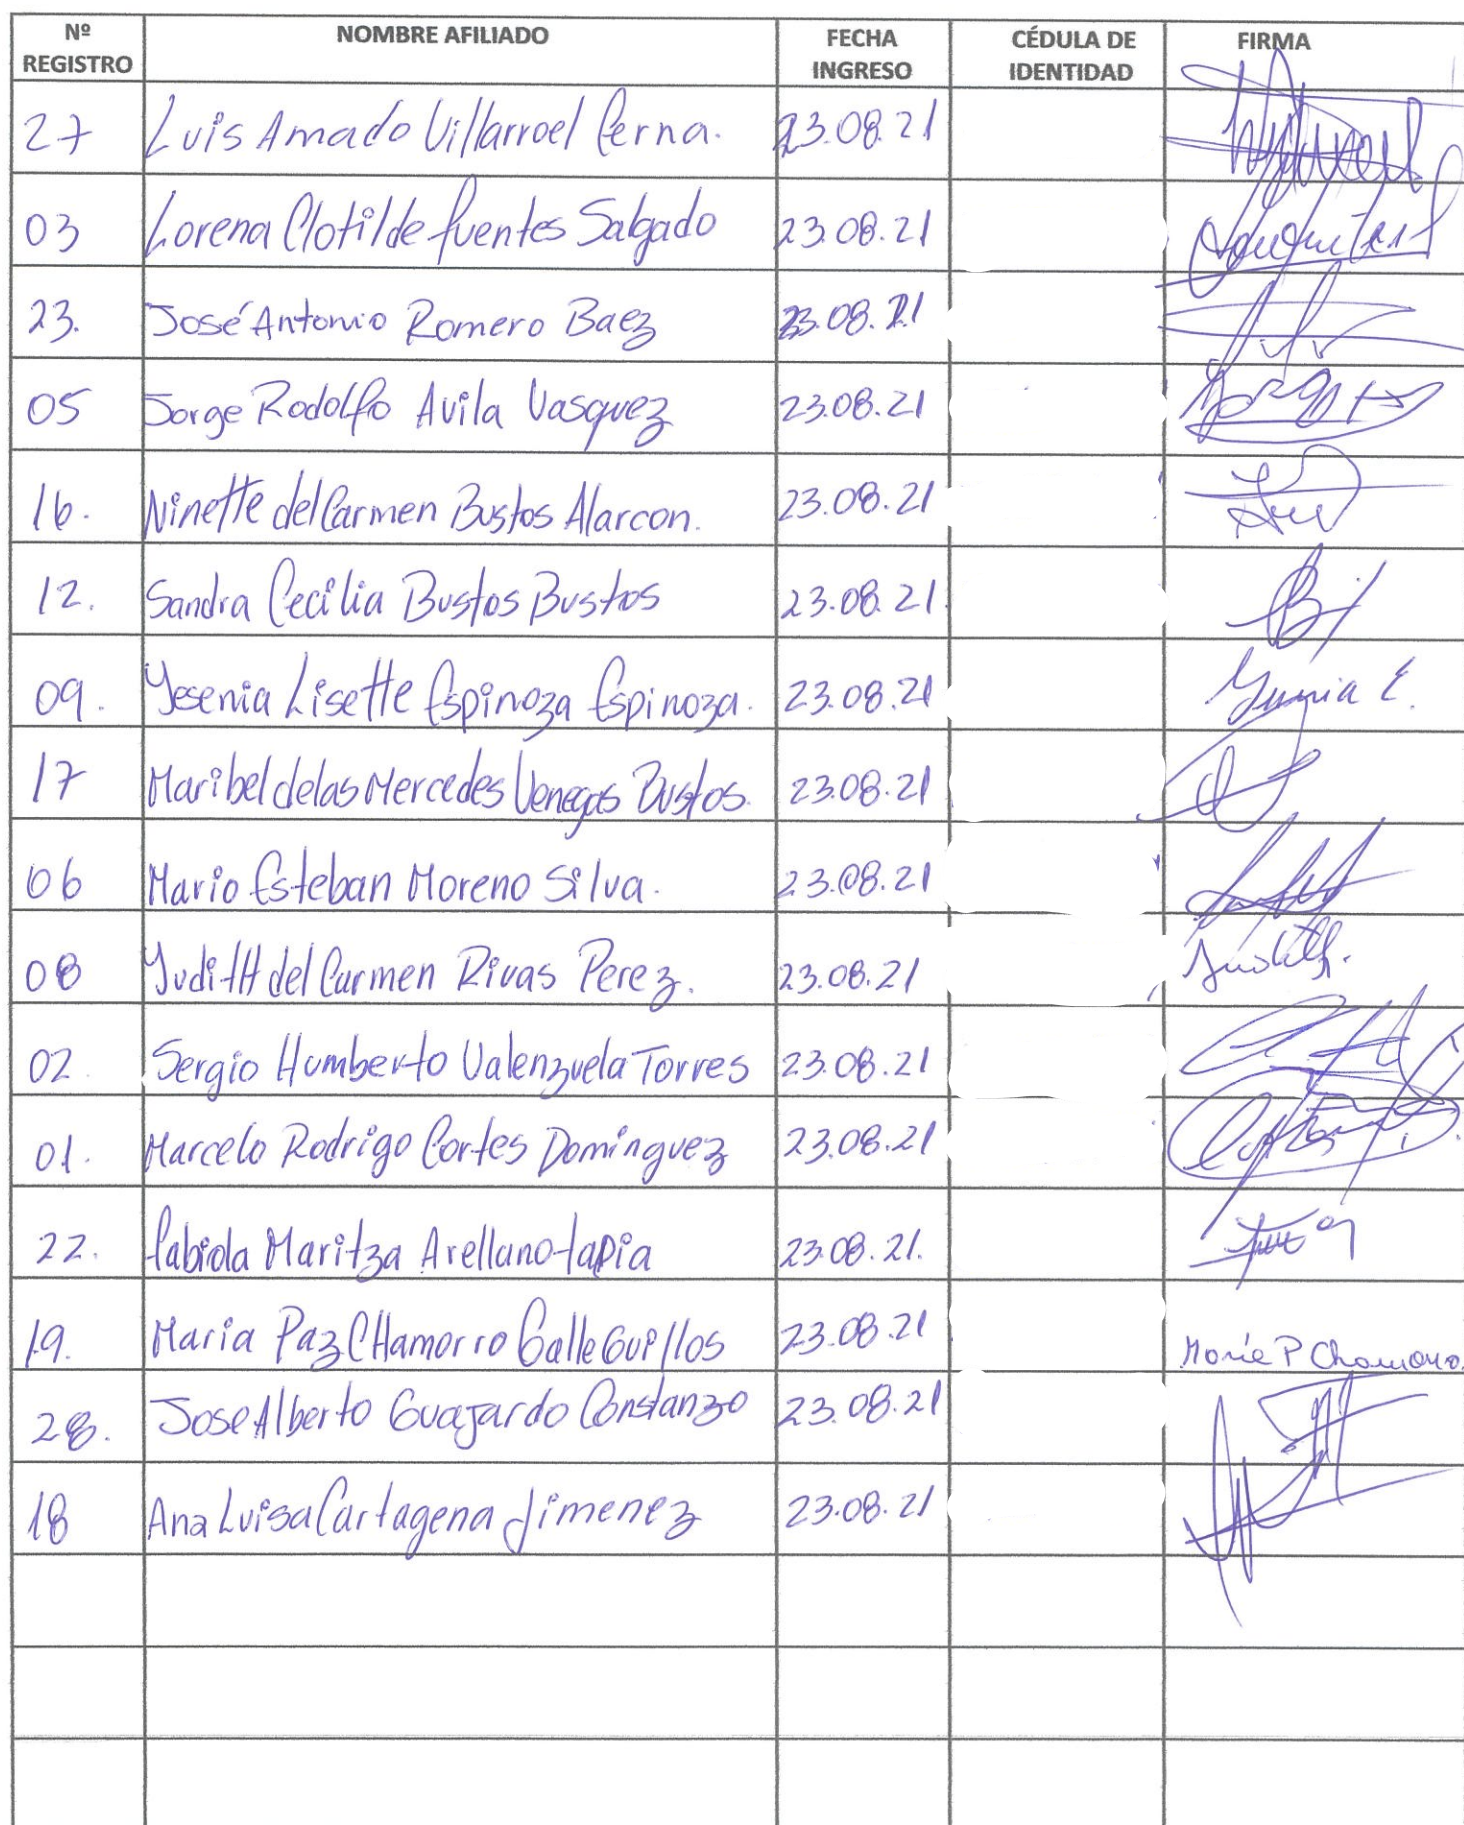 Nº REGISTRO NOMBRE AFILIADO FECHA INGRESO CÉDULA DE IDENTIDAD FIRMA
27 Luis Amado Villarroel Cerna. 23.08.21
03 Lorena Clotilde fuentes Salgado 23.08.21
23. José Antonio Romero Baez 23.08.21
05 Jorge Rodolfo Avila Vasquez 23.08.21
16. Ninette del Carmen Bustos Alarcon. 23.08.21
12. Sandra Cecilia Bustos Bustos 23.08.21.
09. Yesenia Lisette Espinoza Espinoza. 23.08.21
17 Maribel delas Mercedes Venegas Bustos. 23.08.21
06 Mario Esteban Moreno Silva. 23.08.21
08 Yudith del Carmen Rivas Perez. 23.08.21 Judith.
02. Sergio Humberto Valenzuela Torres 23.08.21
01. Marcelo Rodrigo Cortes Dominguez 23.08.21
22. fabiola Maritza Arellano tapia 23.08.21.
19. Maria Paz CHamorro GalleGuillos 23.08.21 Maria P Chamorro.
28. Jose Alberto Guajardo Constanzo 23.08.21
18 Ana Luisa Cartagena Jimenez 23.08.21